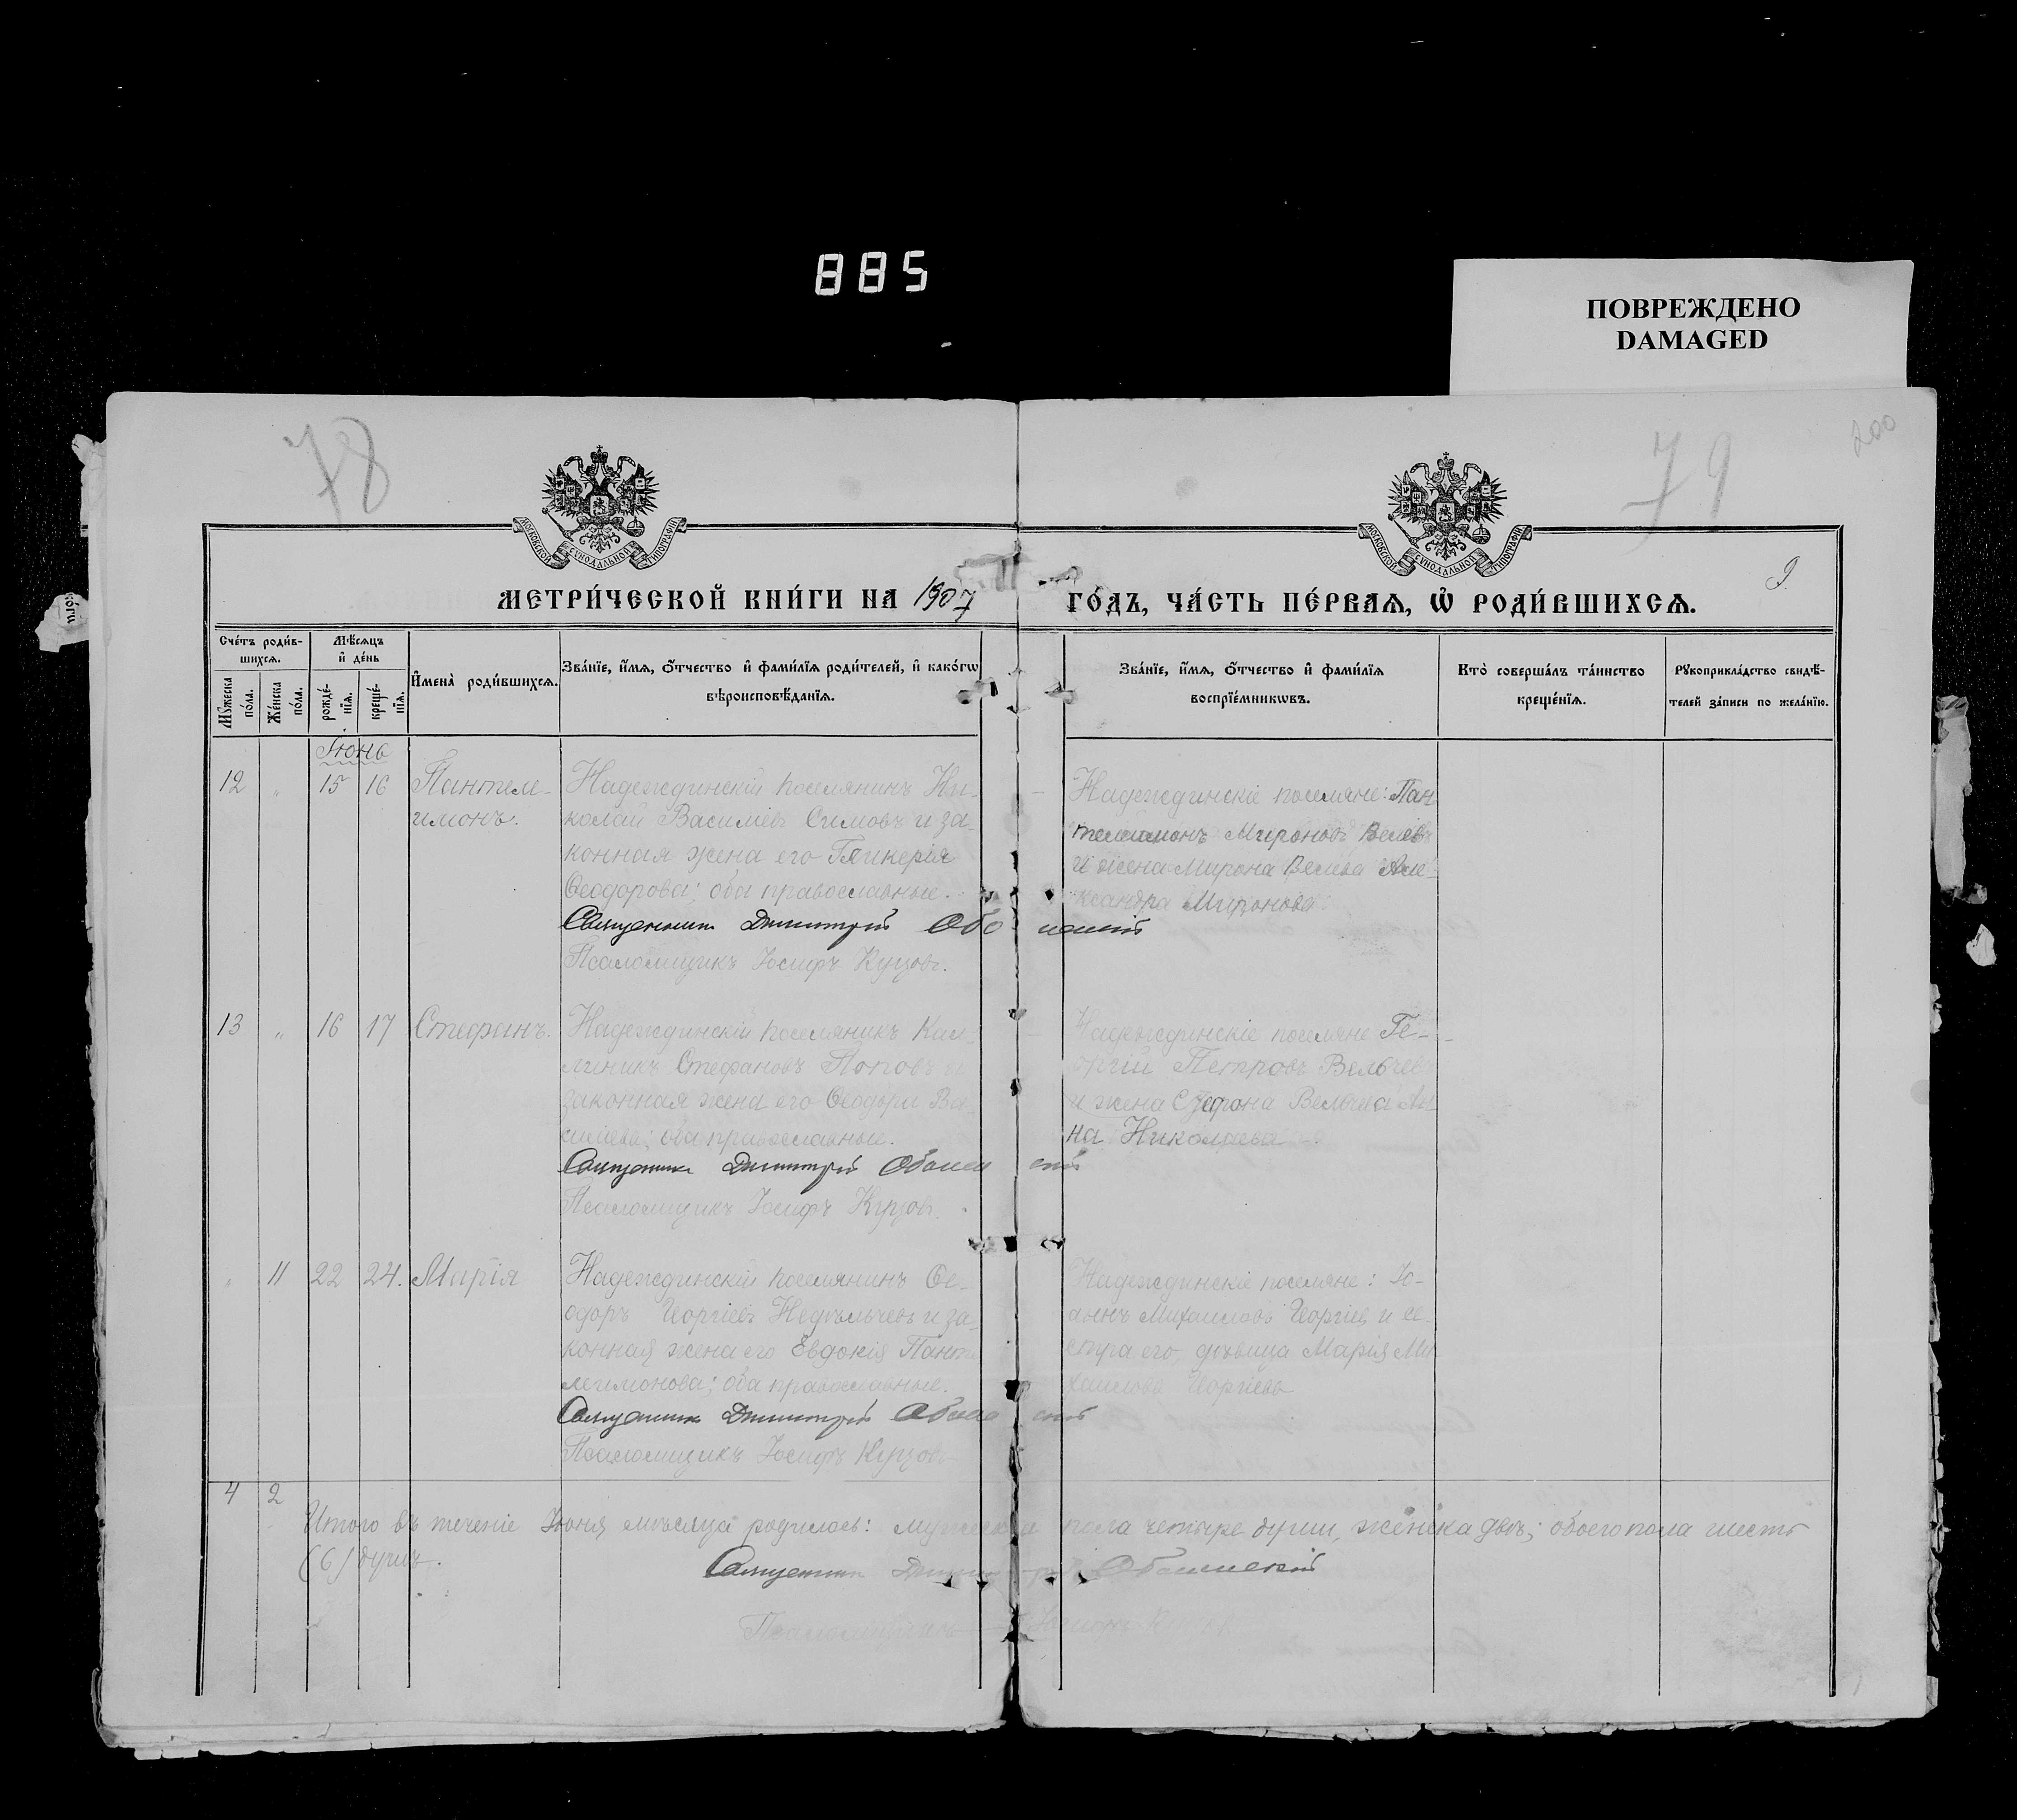 885
ПОВРЕЖДЕНО
DAMAGED
78
79
200
МОСКОВСКОЙ СУНОДАЛЬНОЙ ТИПОГРАФІИ
МОСКОВСКОЙ СУНОДАЛЬНОЙ ТИПОГРАФІИ
9.
МЕТРИ́ЧЕСКОЙ КНИ́ГИ НА 1907
ГО́ДЪ, ЧА́СТЬ ПЕ́РВАѦ, Ѡ҆ РОДИ́ВШИХСѦ.
Сче́тъ роди́в-
шихсѧ.
Мѣ́сѧцъ
и҆ де́нь
Мꙋжеска
по́ла.
Же́нска
по́ла.
рожде́-
нїѧ.
креще́-
нїѧ.
И҆мена̀ роди́вшихсѧ.
Зва́нїе, и҆́мѧ, ѻ҆́тчество и҆ фами́лїѧ роди́телей, и҆ како́гѡ
вѣроисповѣ́данїѧ.
Зва́нїе, и҆́мѧ, ѻ҆́тчество и҆ фами́лїѧ
воспрїе́мникѡвъ.
Кто̀ соверша́лъ та́инство
креще́нїѧ.
Рꙋкоприкла́дство свидѣ́-
телей за́писи по жела́нїю.
Іюнь
12 " 15 16 Пантеле-
имонъ.
Надеждинскій поселянинъ Ни-
колай Василіевъ Симовъ и за-
конная жена его Гликерія
Ѳеодорова; оба православные.
Священникъ Димитрій Обо
Псаломщикъ Іосифъ Куцовъ.
Надеждинскіе поселяне: Пан
телеимонъ Мироновъ Велевъ
и жена Мирона Велева Але-
ксандра Миронова.
13 " 16 17 Стефанъ.
Надеждинскій поселянинъ Кал-
линикъ Стефановъ Поповъ и
законная жена его Ѳеодора Ва-
силіева; оба православные.
Священникъ Димитрій
Псаломщикъ Іосифъ Куцовъ.
Надеждинскіе поселяне Ге-
оргій Петровъ Вельчев
и жена Стефана Вельчева Ан-
на Николаева
" 11 22 24. Марія
Надеждинскій поселянинъ Ѳе-
одоръ Георгіевъ Недѣльчевъ и за-
конная жена его Евдокія Панте
леимонова; оба православные.
Священникъ Димитрій
Псаломщикъ Іосифъ Куцовъ
Надеждинскіе поселяне: Іо-
аннъ Михаиловъ Георгіев и се-
стра его, дѣвица Марія Ми
хаилова Георгіева
4 2
Итого въ теченіе Іюня мѣсяца родилось: мужеска пола четыре души, женска двѣ; обоего пола шесть
(6) душъ.
Священникъ Димитрій
Псаломщикъ Іосифъ Куцовъ